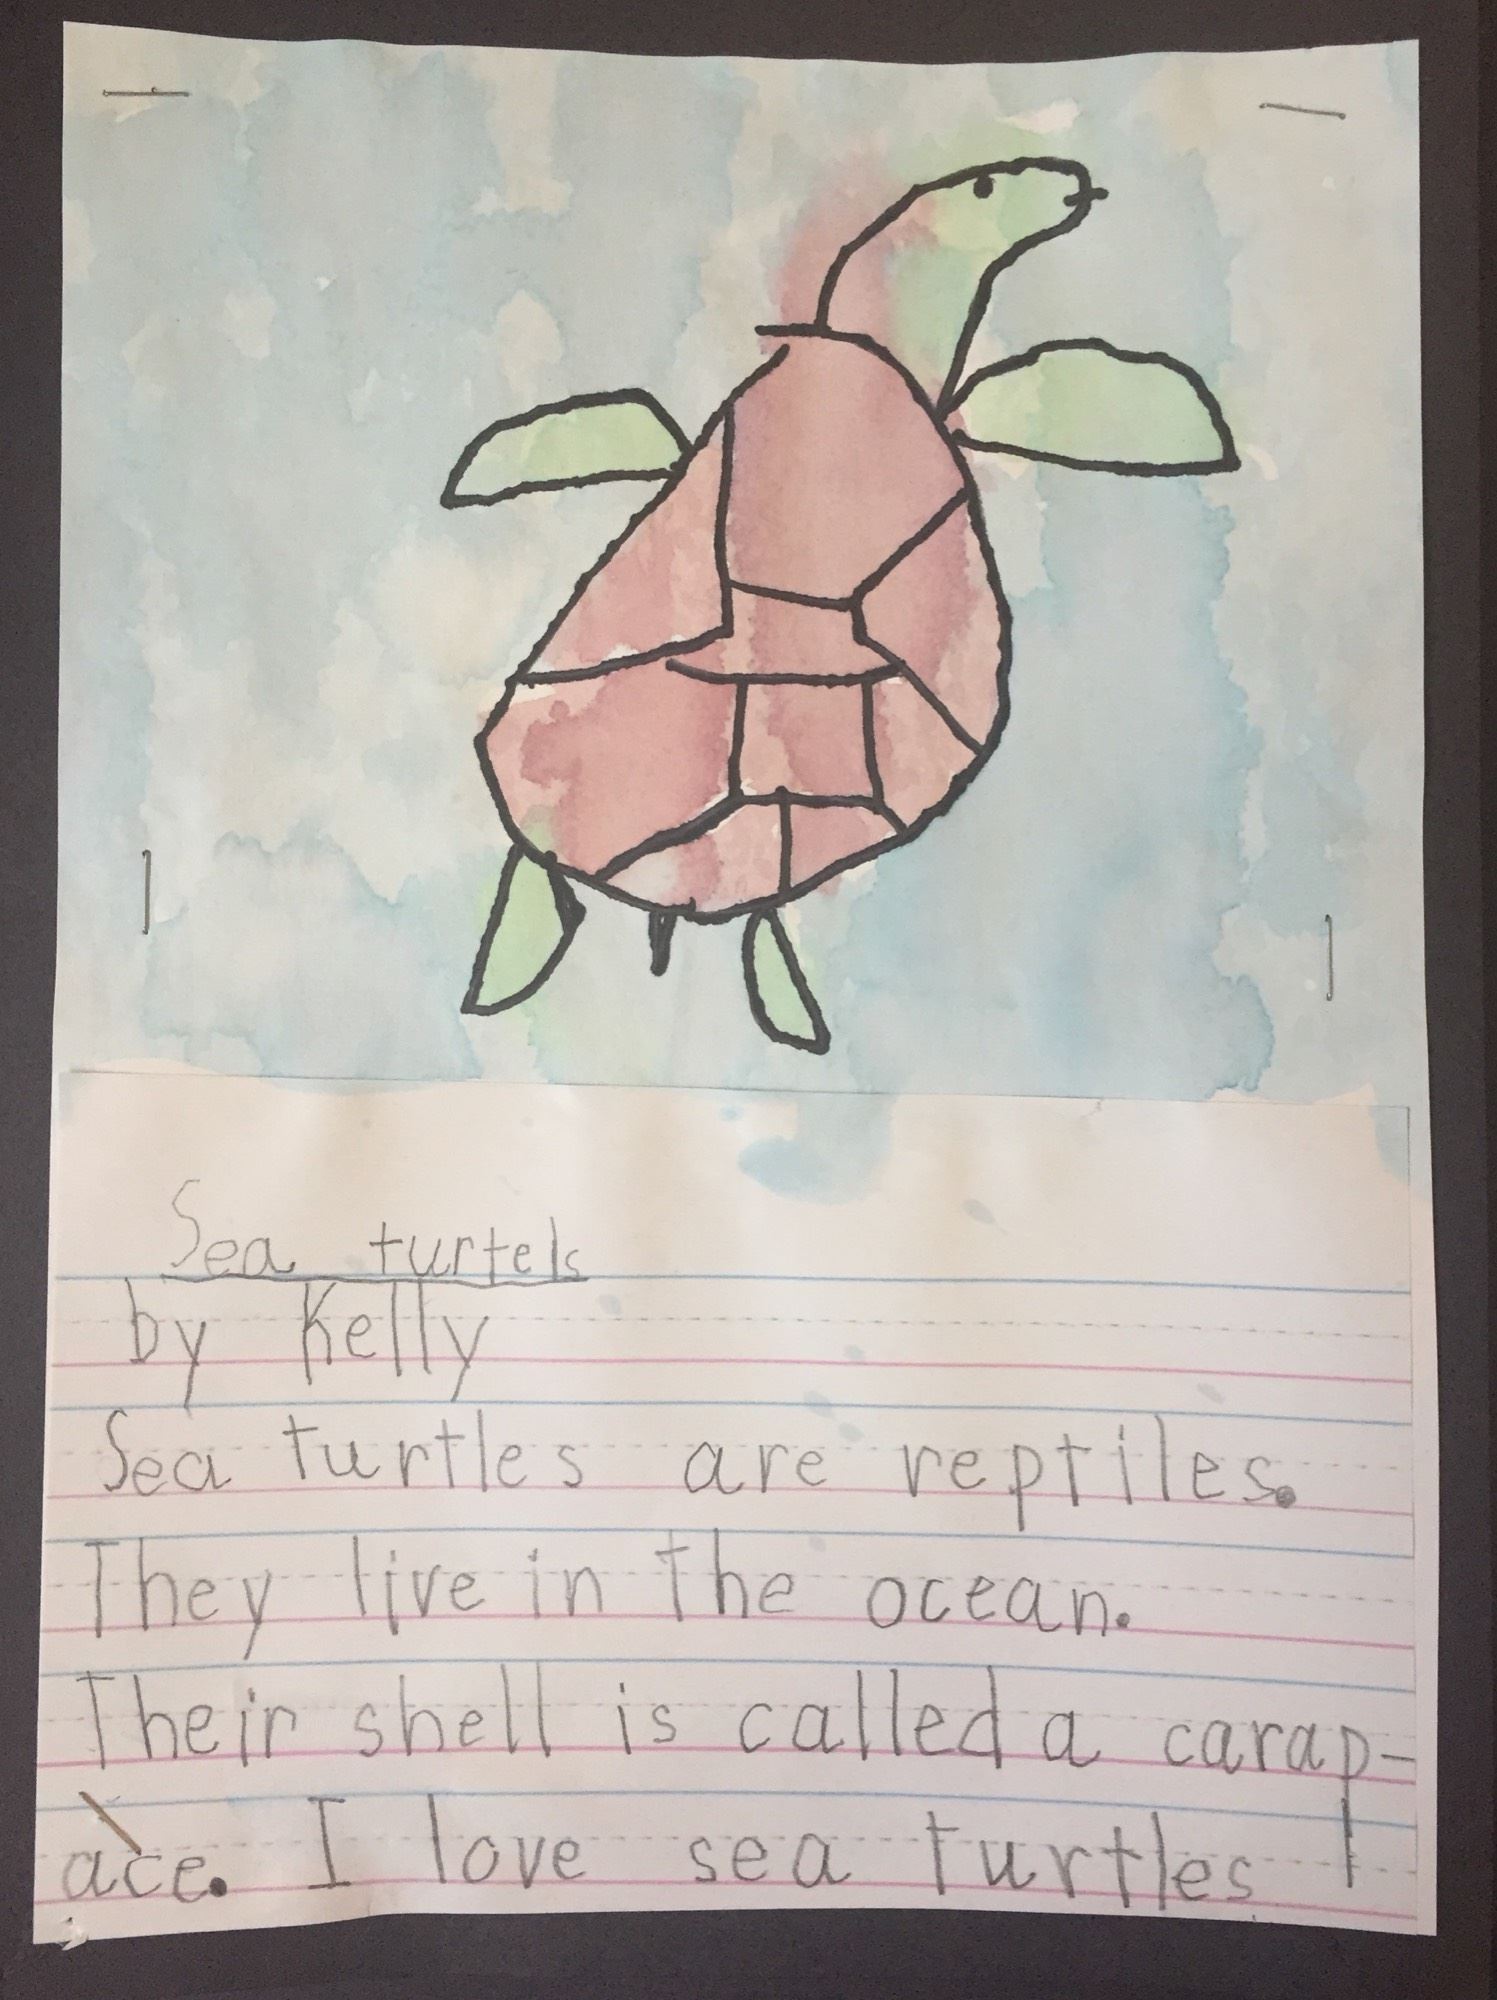 Sea turtels
by Kelly
Sea turtles are reptiles.
They live in the ocean.
Their shell is called a carap-
ace. I love sea turtles !